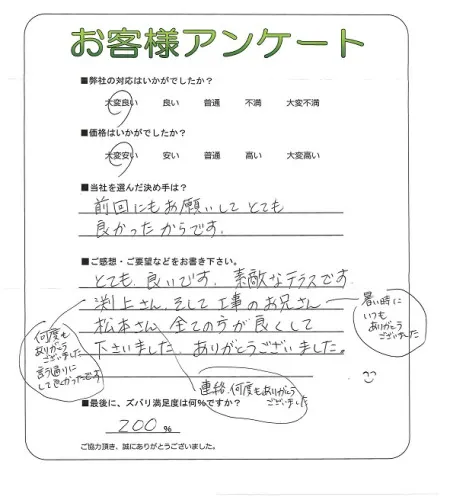 お客様アンケート
■弊社の対応はいかがでしたか？
大変良い 良い 普通 不満 大変不満
■価格はいかがでしたか？
大変安い 安い 普通 高い 大変高い
■当社を選んだ決め手は？
前回にもお願いしてとても
良かったからです.
■ご感想・ご要望などをお書き下さい。
とても良いです. 素敵なテラスです.
渕上さん、そして工事のお兄さん
松本さん、全ての方が良くして
下さいました. ありがとうございました。
暑い時に
いつも
ありがとう
ございました
何度も
ありがとう
ございました
言う通りに
して良かったです
連絡、何度もありがとう
ございました
■最後に、ズバリ満足度は何％ですか？
200 %
ご協力頂き、誠にありがとうございました。